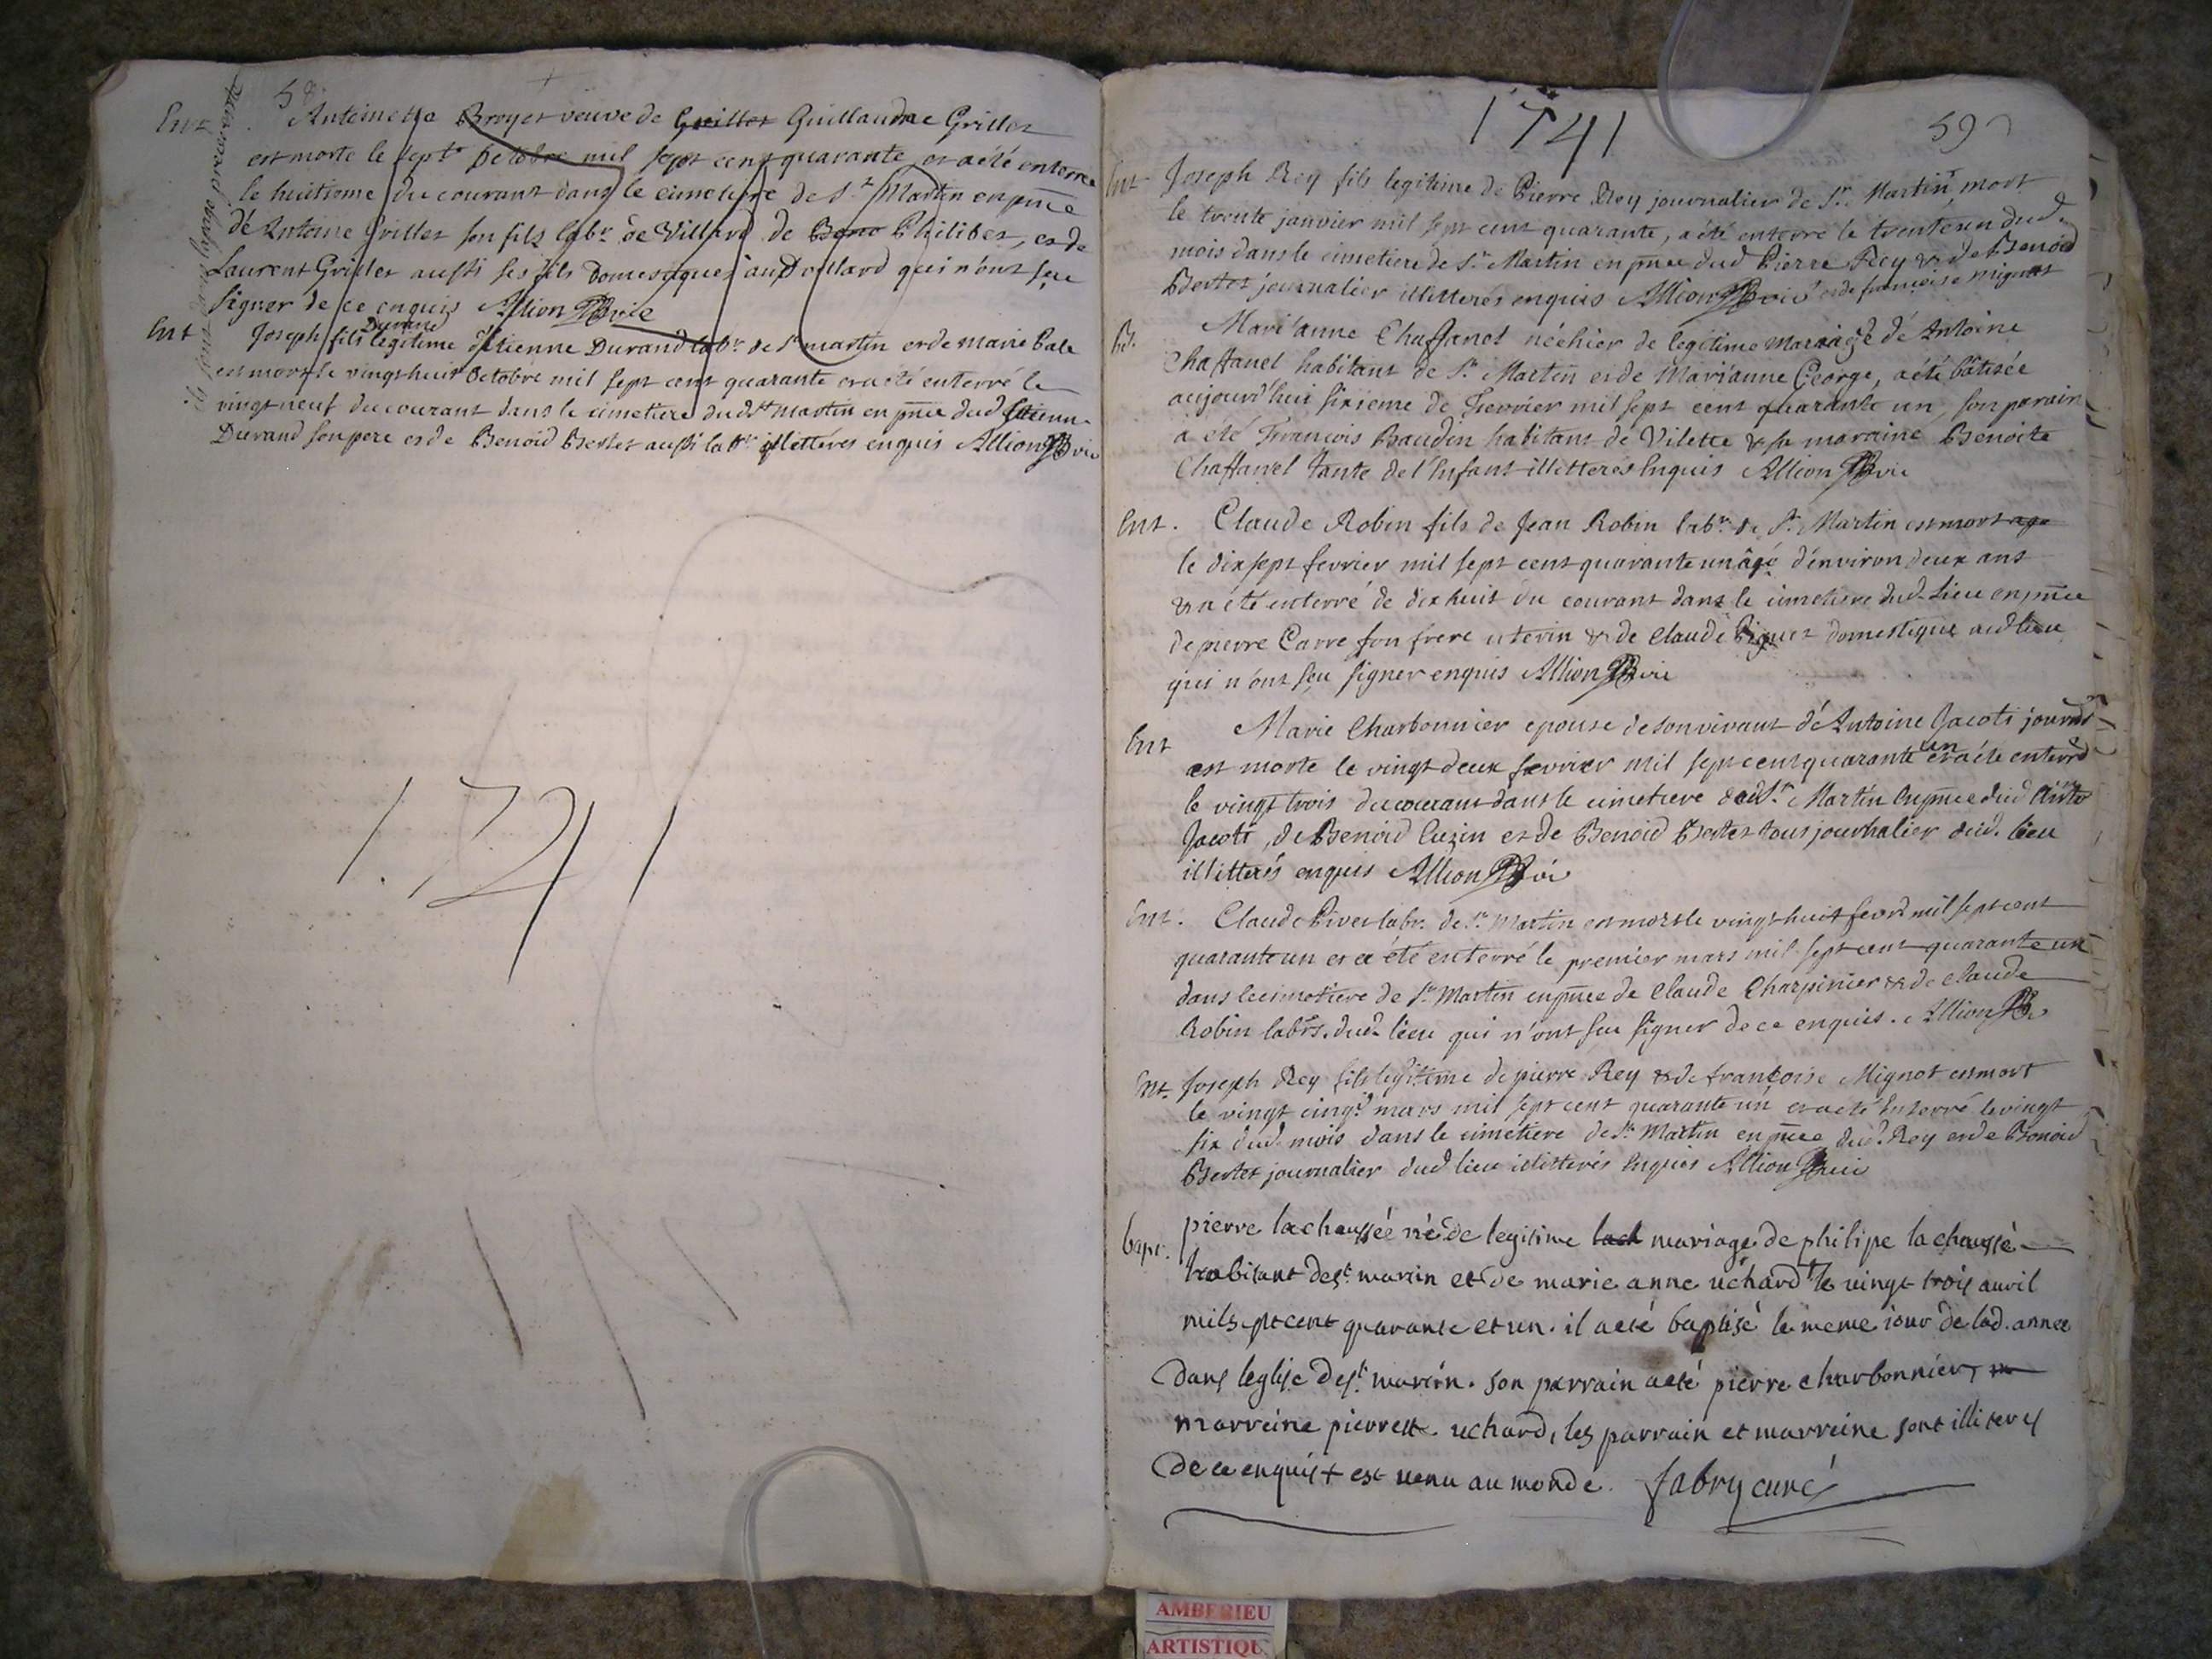 58
ils sont dans la page precedente
Ent. Antoinette Broyer veuve de Grillet Guillaume Grillet
est morte le sept.e octobre mil sept cent quarante et a été enterré
le huitieme du courant dans le cimetiere de St. Martin en pnce
de Antoine Grillet son fils labr. de Villard de Beno Philibert, et de
Laurent Grillet aussi ses fils domestiques aud Villard qui n'ont seu
signer de ce enquis Allion vic
Durand
Ent Joseph fils legitime d'Etienne Durand labr. de St martin et de marie Bale
est mort le vingt huit octobre mil sept cent quarante et a été enterré le
vingt neuf du courant dans le cimetiere dud St martin en pnce dud Etienne
Durand son pere et de Benoid Bertet aussi labr. illettéres enquis Allion vic
1741
1741
59
Ent Joseph Rey fils legitime de Pierre Rey journalier de St. Martin mort
le trente janvier mil sept cent quarante, a été enterré le trente un dud.
mois dans le cimetiere de St. Martin en pnce dud Pierre Rey & de Benoid
Bertet journalier illitterés enquis Allion vic et de francoise mignot
Bt. Mari'anne Chaffanel née hier de legitime mariage de Antoine
Chaffanel habitant de St. Martin et de Mari'anne George, a été bâtisée
aujourd'huit sixieme de Fevrier mil sept cent quarante un, son parain
a eté Francois Baudin habitant de Vilette & sa maraine Benoite
Chaffanel tante de l'Enfant illitterés Enquis Allion vic
Ent. Claude Robin fils de Jean Robin labr. de St. Martin est mort age
le dix sept fevrier mil sept cent quarante un âgé d'environ deux ans
& a été enterré de dix huit du courant dans le cimetiere dud. Lieu en pnce
de pierre Carre son frere uterin & de Claude domestique aud lieu
qui n'ont seu signer enquis Allion vic
Ent Marie Charbonnier epouse de son vivant d'Antoine Jacoti journ
est morte le vingt deux fevrier mil sept cent quarante un et a été enterré
le vingt trois du courant dans le cimetiere dud St. Martin En pnce dud Anto
Jacoti, de Benoid Cuzin et de Benoid Bertet tous journalier dud. lieu
illitterés enquis Allion vic
Ent. Claude labr. de St. Martin est mort le vingt huit fevr mil sept cent
quarante un et a été enterré le premier mars mil sept cent quarante un
dans le cimetiere de St. Martin en pnce de Claude Charpinier & de Claude
Robin labrs. dud lieu qui n'ont seu signer de ce enquis. Allion
Ent. Joseph Rey fils legitime de pierre Rey & de francoise Mignot est mort
le vingt cinq mars mil sept cent quarante un et a eté Enterré le vingt
six dud. mois dans le cimetiere de St. Martin en pnce dud. Rey et de Benoid
Bertet journalier dud lieu illitterés Enquis Allion vic
bapt. pierre lachaussée né de legitime lach mariage de philipe lachaussé
habitant de st. martin et de marie anne uchard + le uingt trois auril
mil sept cent quarante et un. il a eté baptisé le meme iour de lad. annee
dans leglise de st. martin. son parrain a eté pierre charbonnier, m
marreine pierrett. uchard, les parrain et marreine sont illiterés
de ce enquis + est uenu au monde. fabry curé
AMBERIEU
ARTISTIQU